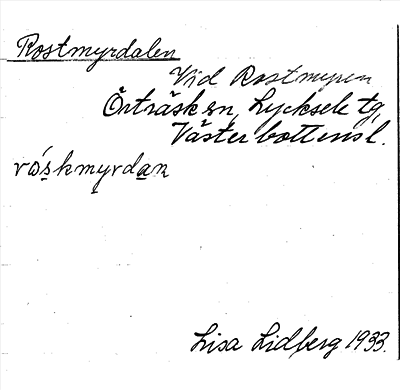 Rostmyrdalen
Vid Rostmyren
Örträsk sn, Lycksele tg,
Västerbottens l.
rós̱kmyrda̱n
Lisa Lidberg 1933.